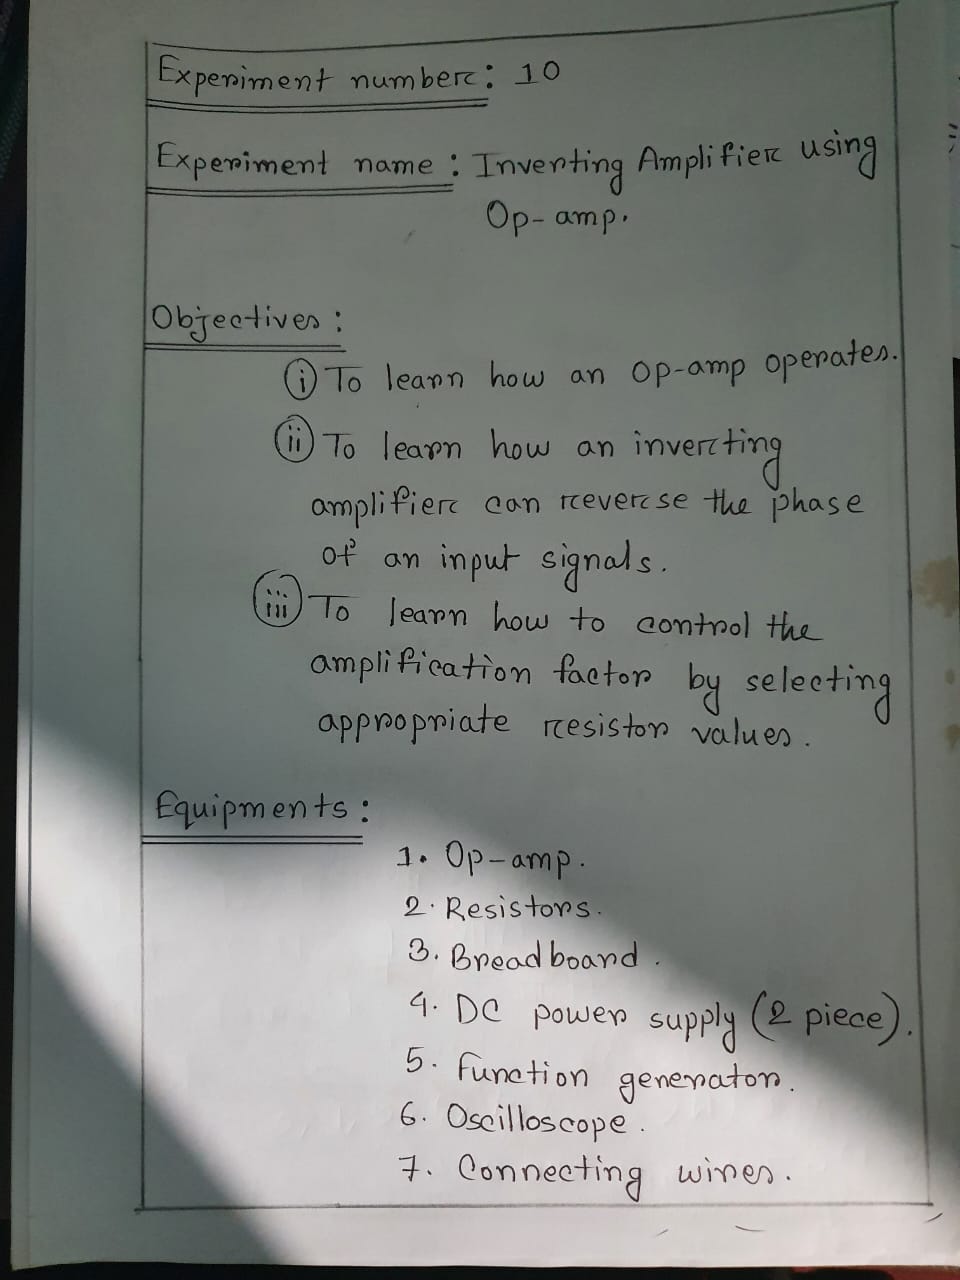 Experiment number: 10
Experiment name: Inverting Amplifier using
Op-amp.
Objectives:
(i) To learn how an op-amp operates.
(ii) To learn how an inverting
amplifier can reverse the phase
of an input signals.
(iii) To learn how to control the
amplification factor by selecting
appropriate resistor values.
Equipments:
1. Op-amp.
2. Resistors.
3. Breadboard.
4. DC power supply (2 piece).
5. Function generator.
6. Oscilloscope.
7. Connecting wires.